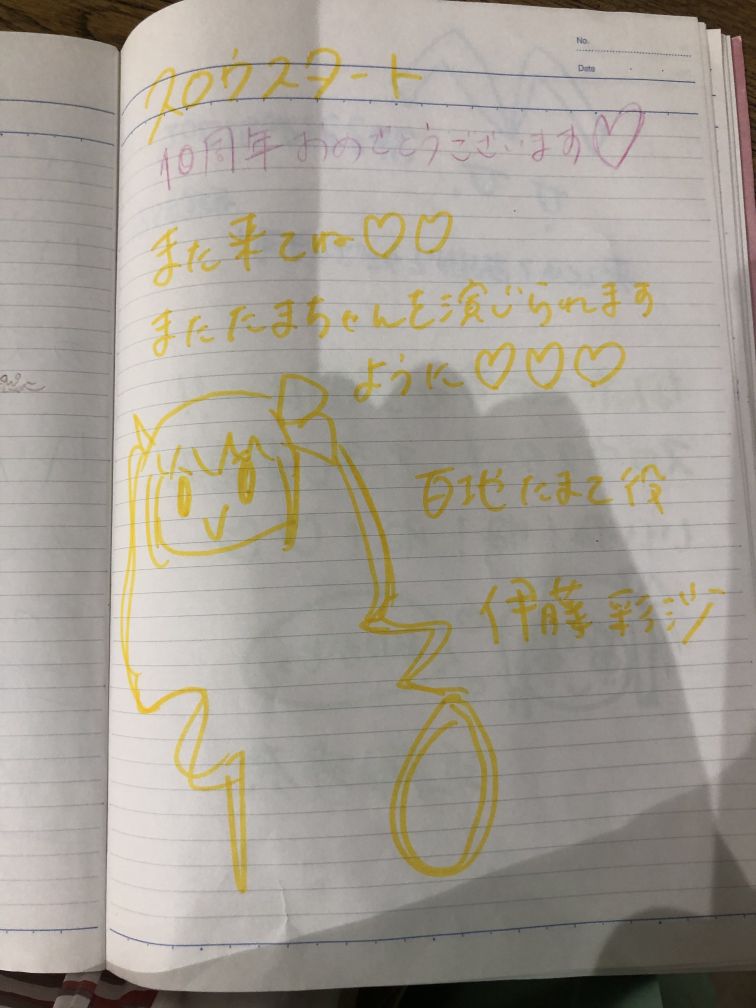 No.
Date
スロウスタート
10周年おめでとうございます♡
また来てね♡♡
またたまちゃんを演じられます
ように♡♡♡
百地たまて役
伊藤彩沙